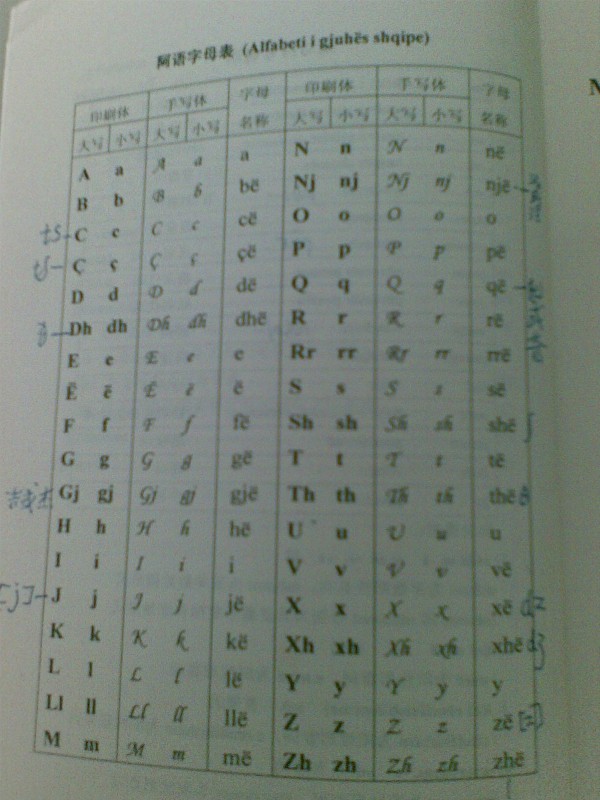 阿语字母表 (Alfabeti i gjuhës shqipe)
印刷体 手写体 字母 印刷体 手写体 字母
大写 小写 大写 小写 名称 大写 小写 大写 小写 名称
A a A a a N n N n në
B b B b bë Nj nj Nj nj një
ts C c C c cë O o O o o
tʃ Ç ç Ç ç çë P p P p pë
D d D d dë Q q Q q që
ð Dh dh Dh dh dhë R r R r rë
E e E e e Rr rr Rr rr rrë
Ë ë Ë ë ë S s S s së
F f F f fë Sh sh Sh sh shë ʃ
G g G g gë T t T t të
Gj gj Gj gj gjë Th th Th th thë θ
H h H h hë U u U u u
I i I i i V v V v vë
[j] J j J j jë X x X x xë dz
K k K k kë Xh xh Xh xh xhë dʒ
L l L l lë Y y Y y y
Ll ll Ll ll llë Z z Z z zë [z]
M m M m më Zh zh Zh zh zhë